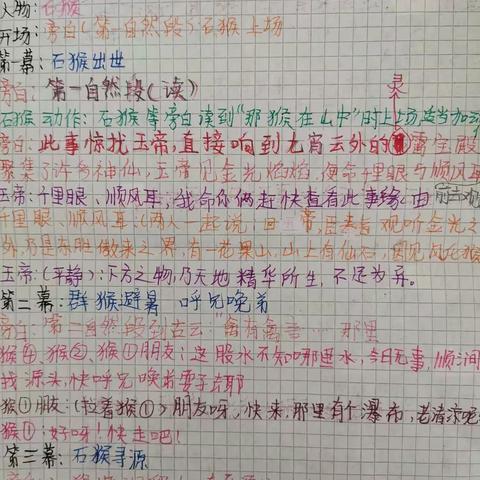 人物:石猴
开场:旁白(第一自然段)石猴上场
第一幕:石猴出世
旁白:第一自然段(读)
灵
石猴动作:石猴屋旁白读到"那猴在山中"时上场,适当加动
旁白:此事惊扰玉帝,直接响到九宵云外的雷宝殿
聚集了许多神仙,玉帝见金光焰焰,便命千里眼与顺风耳
玉帝:千里眼、顺风耳,我命你俩赶快查看此事缘由 前去观
千里眼、顺风耳:(两人一起说)回 帝,臣奉旨观听金光之
外,乃是东胜傲来之界,有一花果山,山上有仙石,
玉帝(平静):下方之物,乃天地精华所生,不足为弃。
第二幕:群猴避暑 呼兄唤弟
旁白:"第二自然段到古云"禽有禽言…… 那里
猴④、猴②、猴①朋友:这股水不知哪里水,今日无事,顺涧
找源头,快呼兄唤弟耍子去耶
猴①朋友:(拉着猴①)朋友呀,快来,那里有个瀑布,老清凉呢
猴①:好呀!快走吧!
第三幕:石猴寻源